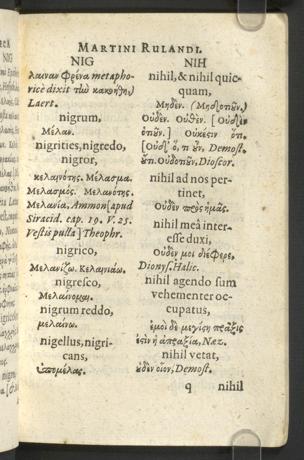 MARTINI RULANDI.
NIG
λαιναν φρένα metapho-
ricè dixit
Laert.
nigrum,
Μέλαν.
nigrities, nigredo,
nigror,
κελαινότης. Μέλασμα.
Μελασμός. Μελανότης.
Μελανία, Ammon [apud
Siracid. cap. 19. V. 25.
Vestis pulla] Theophr.
nigrico,
Μελανίζω. Κελαινιάω.
nigresco,
Μελαίνομαι.
nigrum reddo,
μελαίνω.
nigellus, nigri-
cans,
ὑπομέλας.
NIH
nihil, & nihil quic-
quam,
Μηδέν. (Μηδοτιοῦν.)
Οὐδέν. Οὐθέν. [Οὐδ'
ὁτιοῦν.] Οὐκέσιν ὅτι.
Demost.
Dioscor.
nihil ad nos per-
tinet,
Οὐδὲν πρὸς ἡμᾶς.
nihil meâ inter-
esse duxi,
Οὐδέν μοι διέφερε,
Dionys. Halic.
nihil agendo sum
vehementer oc-
cupatus,
ἐμοὶ δὲ μεγίστη πρᾶξις
ἐστὶν ἡ ἀπραξία, Naz.
nihil vetat,
οὐδὲν οἷον, Demost.
q nihil